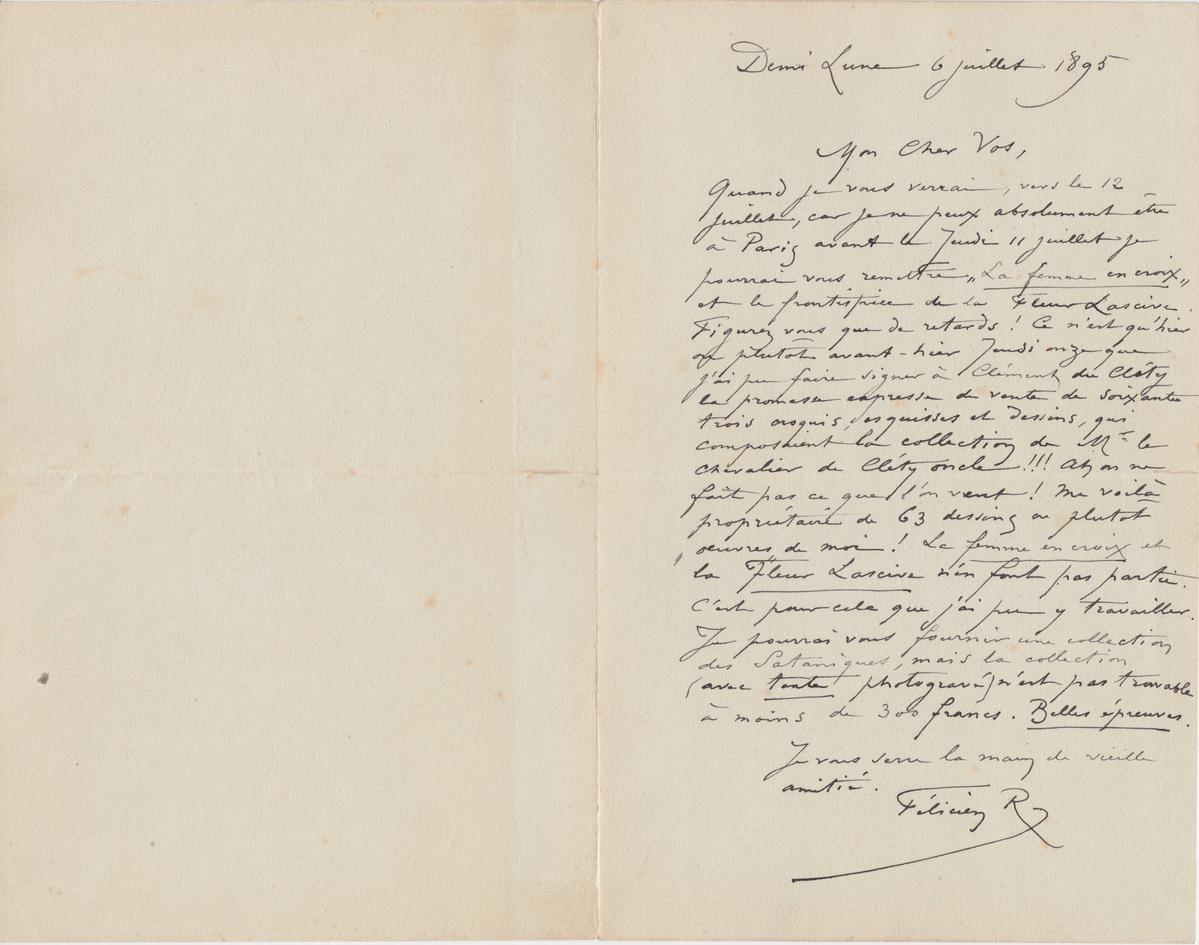 Demi Lune 6 juillet 1895
Mon Cher Vos,
Quand je vous verrai, vers le 12
juillet, car je ne peux absolument être
à Paris avant le Jeudi 11 juillet je
pourrai vous remettre „La femme en croix„
et le frontispice de la Fleur Lascive.
Figurez vous que de retards ! Ce n'est qu'hier
ou plutôt avant-hier Jeudi onze que
j'ai pu faire signer à Clément de Cléty
la promesse expresse de vente de soixante
trois croquis, esquisses et dessins, qui
composaient la collection de Mr le
chevalier de Cléty oncle !!! Ah on ne
fait pas ce que l'on veut ! Me voilà
propriétaire de 63 dessins ou plutôt
„oeuvres de moi„ ! La femme en croix et
la Fleur Lascive n'en font pas partie.
C'est pour cela que j'ai pu y travailler.
Je pourrai vous fournir une collection
des Sataniques, mais la collection
(avec texte photogravé) n'est pas trouvable
à moins de 300 francs. Belles épreuves.
Je vous serre la main de vieille
amitié.
Félicien R